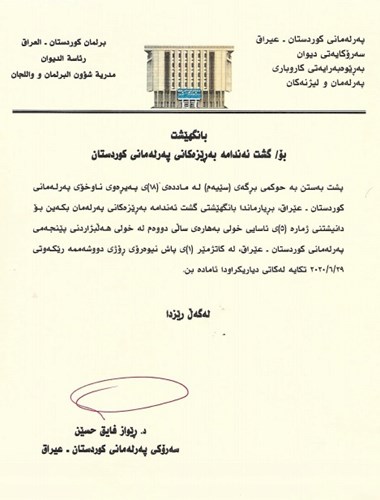 پەرلەمانی کوردستان - عیراق
سەرۆکایەتی دیوان
بەڕێوەبەرایەتی کاروباری
پەرلەمان و لیژنەکان
برلمان كوردستان - العراق
رئاسة الديوان
مديرية شؤون البرلمان واللجان
بانگهێشت
بۆ/ گشت ئەندامە بەڕێزەکانی پەرلەمانی کوردستان
پشت بەستن بە حوکمی بڕگەی (سێیەم) لە ماددەی (١٨)ی پەیڕەوی ناوخۆی پەرلەمانی
کوردستان - عێراق، بڕیارماندا بانگهێشتی گشت ئەندامە بەڕێزەکانی پەرلەمان بکەین بۆ
دانیشتنی ژمارە (٥)ی ئاسایی خولی بەهارەی ساڵی دووەم لە خولی هەڵبژاردنی پێنجەمی
پەرلەمانی کوردستان - عێراق، لە کاتژمێر (١)ی پاش نیوەڕۆی ڕۆژی دووشەممە ڕێکەوتی
٢٠٢٠/٦/٢٩ تکایە لەکاتی دیاریکراودا ئامادە بن.
لەگەڵ ڕێزدا
د. ڕێواز فایق حسێن
سەرۆکی پەرلەمانی کوردستان - عیراق